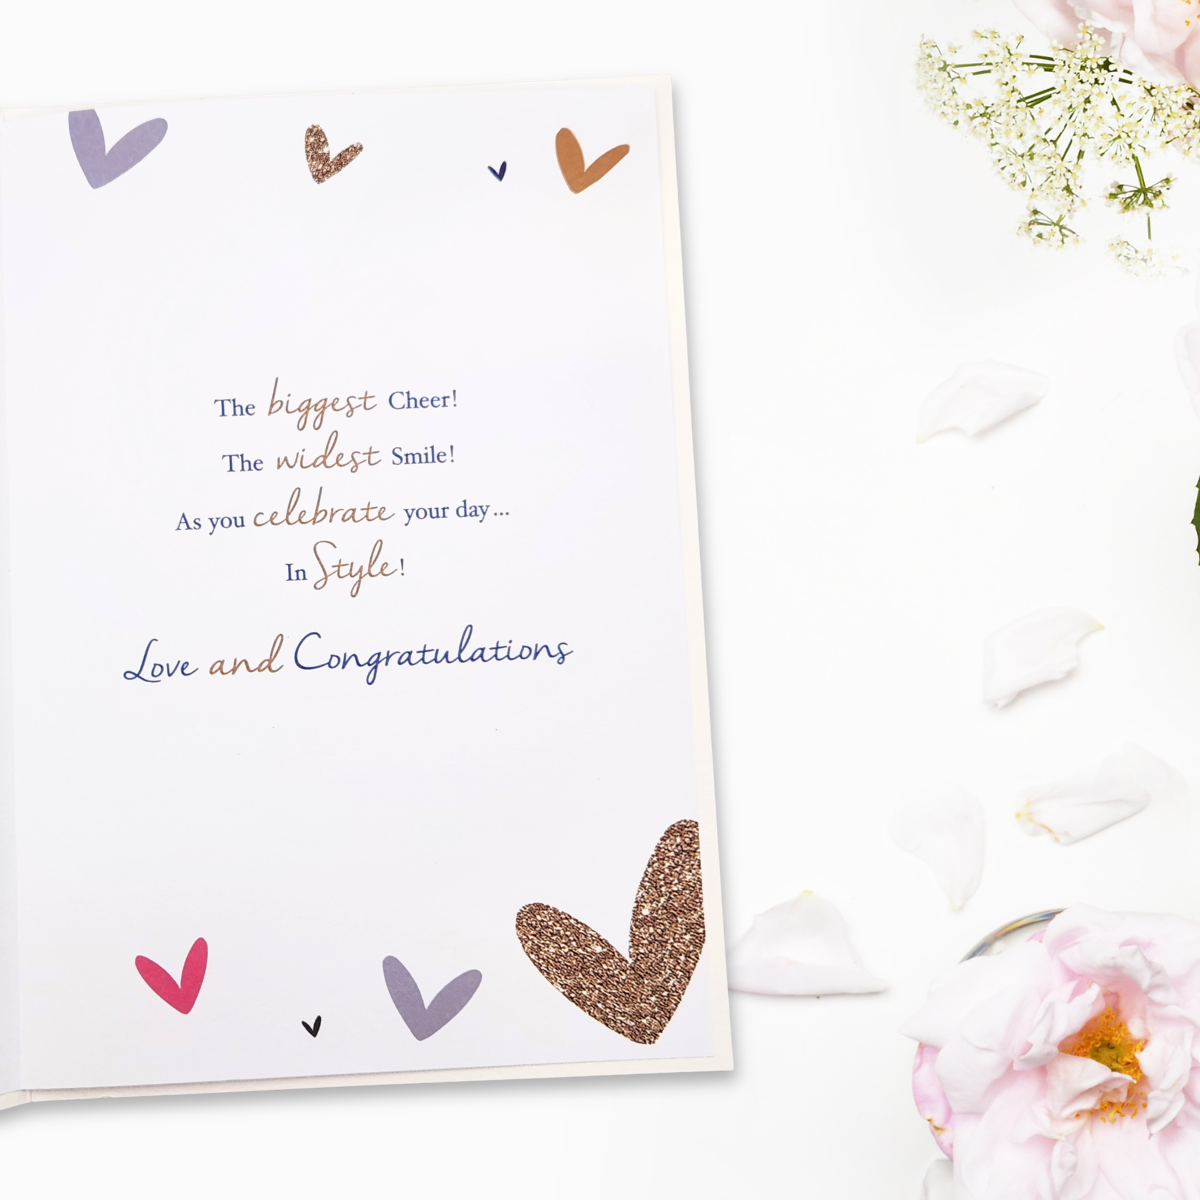 The biggest Cheer!
The widest Smile!
As you celebrate your day...
In Style!
Love and Congratulations